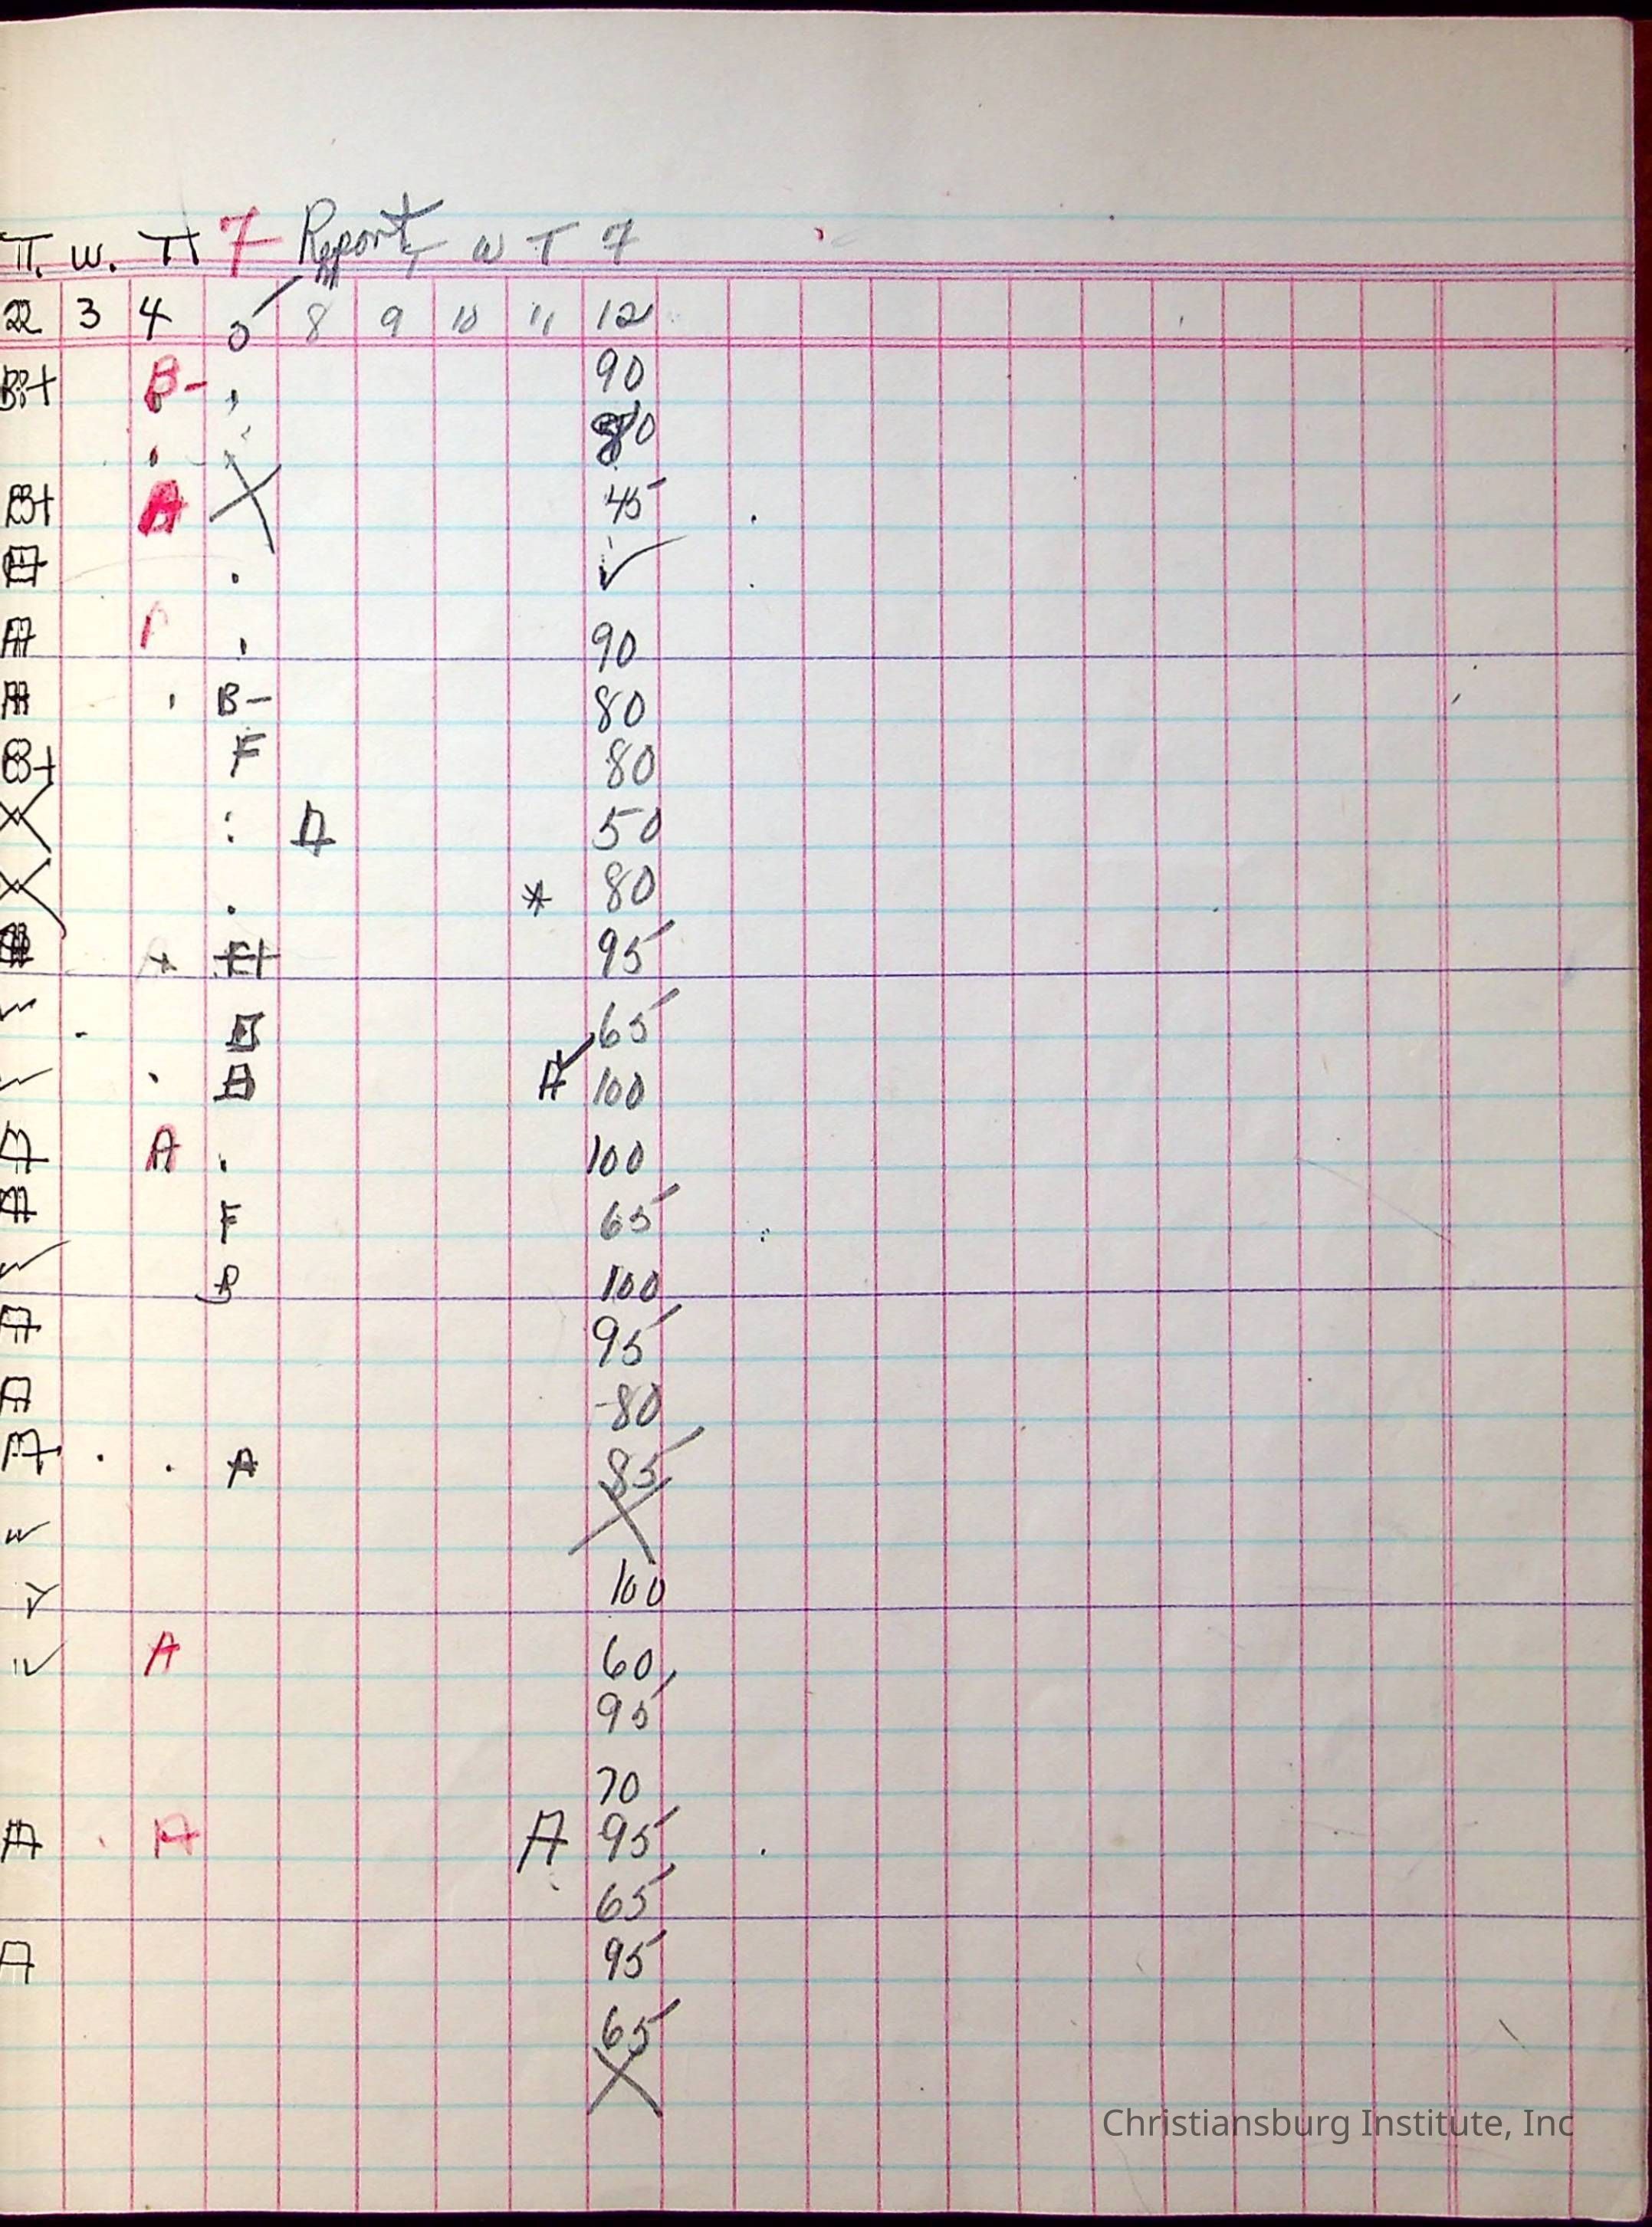 T. W. TH F Report T W T F
2 3 4 5 8 9 10 11 12
B+ B- 90
80
B+ A X 45
✓
A 90
A B- 80
B+ F 80
X A 50
X A 80
A 95
65
A 100
A A 100
A F 65
✓ B 100
A 95
A 80
A A 85
X
✓ 100
✓ A 60
95
70
A A A 95
65
A 95
65
X
Christiansburg Institute, Inc